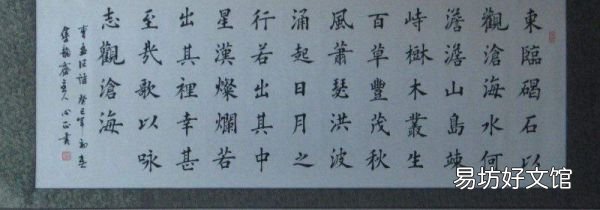 東臨碣石以
觀滄海水何
澹澹山島竦
峙樹木叢生
百草豐茂秋
風蕭瑟洪波
涌起日月之
行若出其中
星漢燦爛若
出其裡幸甚
至哉歌以咏
志觀滄海
易坊好文馆